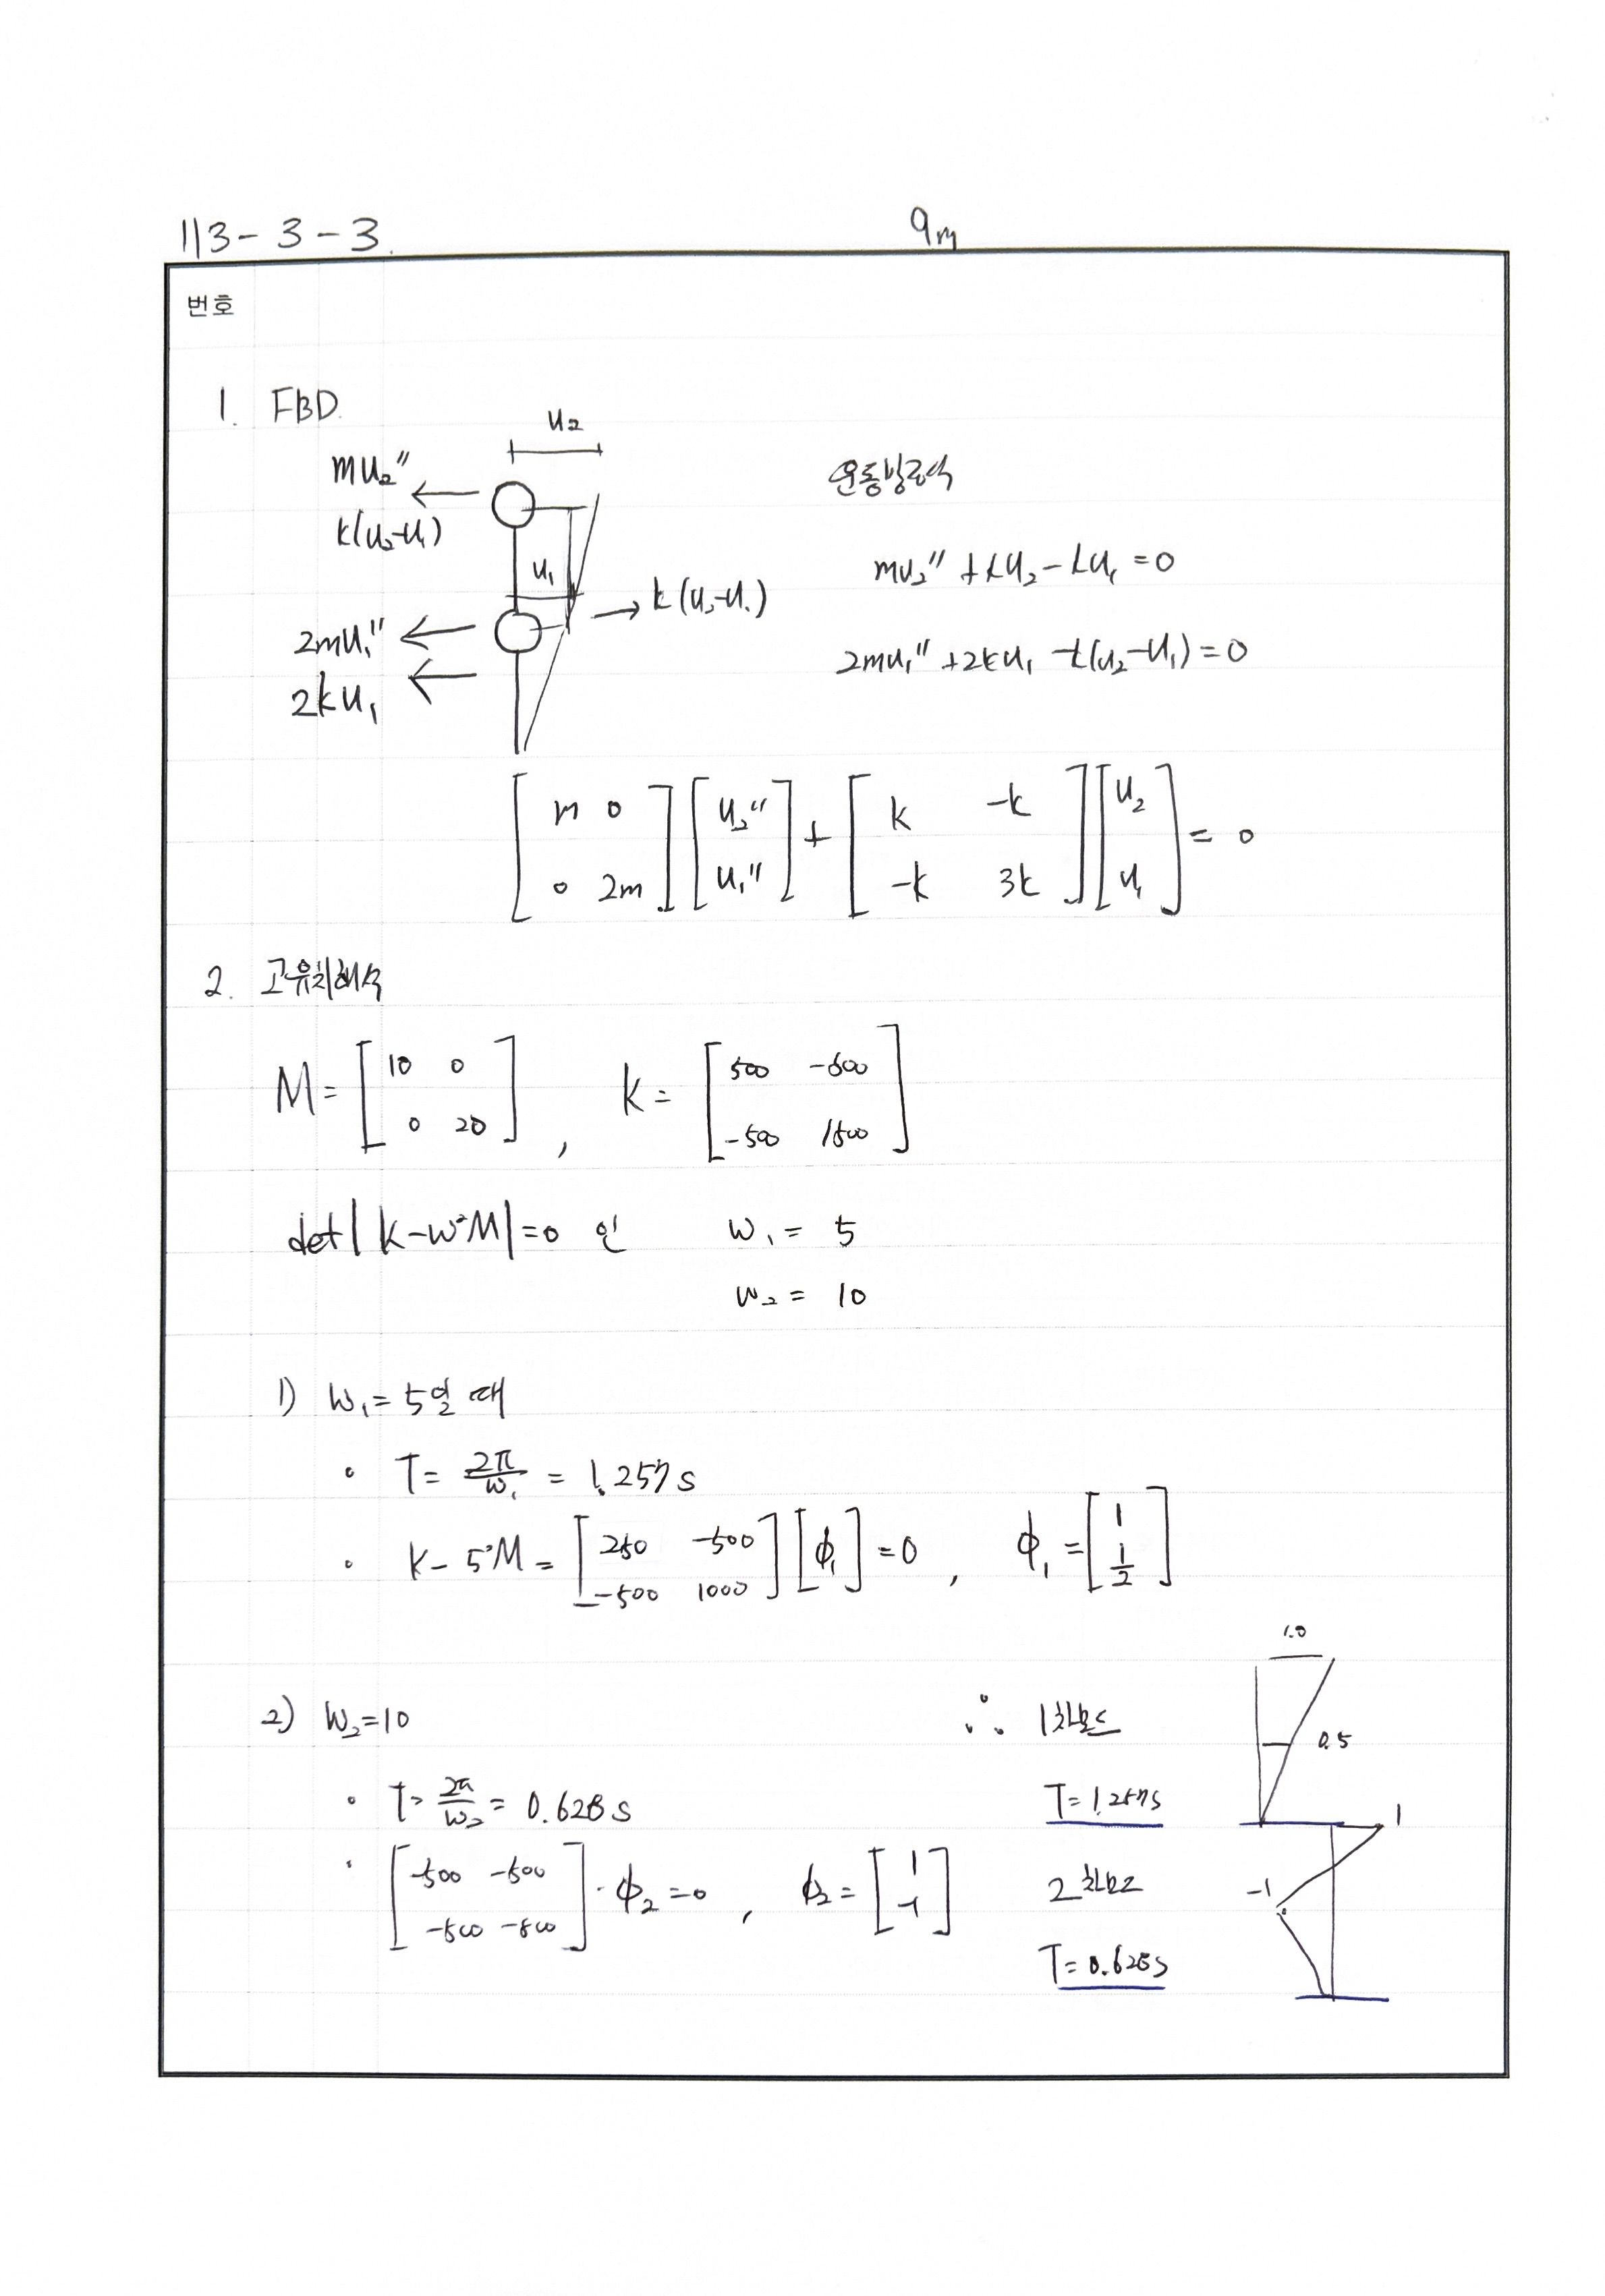 113-3-3.
9m
번호
1. FBD.
u₂
mu₂″
k(u₂-u₁)
u₁
k(u₂-u₁)
2mu₁″
2ku₁
운동방정식
mu₂″ + ku₂ - ku₁ = 0
2mu₁″ + 2ku₁ - k(u₂-u₁) = 0
[m 0; 0 2m] [u₂″; u₁″] + [k -k; -k 3k] [u₂; u₁] = 0
2. 고유치해석
M = [10 0; 0 20] , k = [500 -500; -500 1500]
det| k - w²M | = 0 인 w₁ = 5
w₂ = 10
1) w₁ = 5일 때
• T = 2π/w₁ = 1.257 s
• K - 5²M = [250 -500; -500 1000] [ϕ₁] = 0 , ϕ₁ = [1; 1/2]
2) w₂ = 10
• T = 2π/w₂ = 0.628 s
• [-500 -500; -500 -500] · ϕ₂ = 0 , ϕ₂ = [1; -1]
∴ 1차모드
T = 1.257s
1.0
0.5
2차모드
T = 0.628s
1
-1